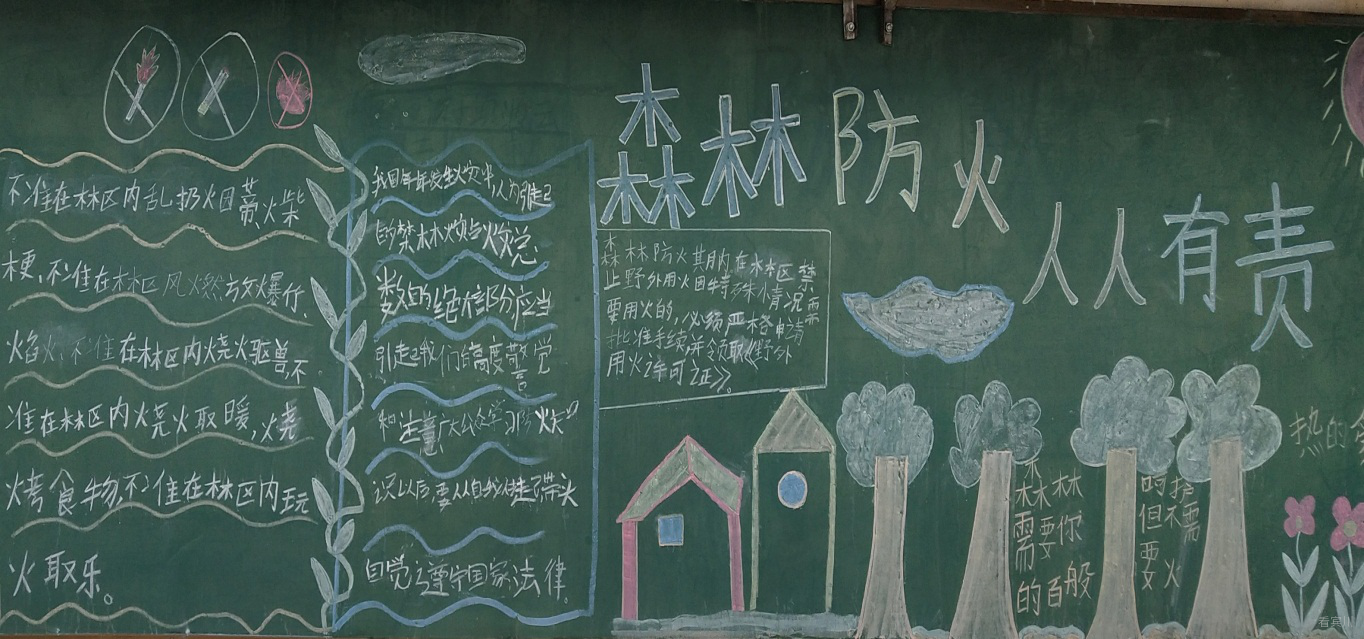 森林防火
人人有责
不准在林区内乱扔火因蒂、火柴
梗,不准在林区风火燃放爆竹
焰火,不准在林区内烧火驱兽,不
准在林区内烧火取暖,烧
烤食物,不准在林区内玩
火取乐。
我国每年发生火灾中人为引起
的森林火灾与火觉,
数的绝大部份应当
引起我们的高度警觉
广大公众学习防火知
识以后要从自我做起带头
自觉遵守国家法律
森林防火其期内在林区禁
止野外用火因特殊情况需
要用火的,必须严格申请
批准手续并领取《野外
用火许可证》。
森林
需要你
的百般
的
但不需
要火
热的